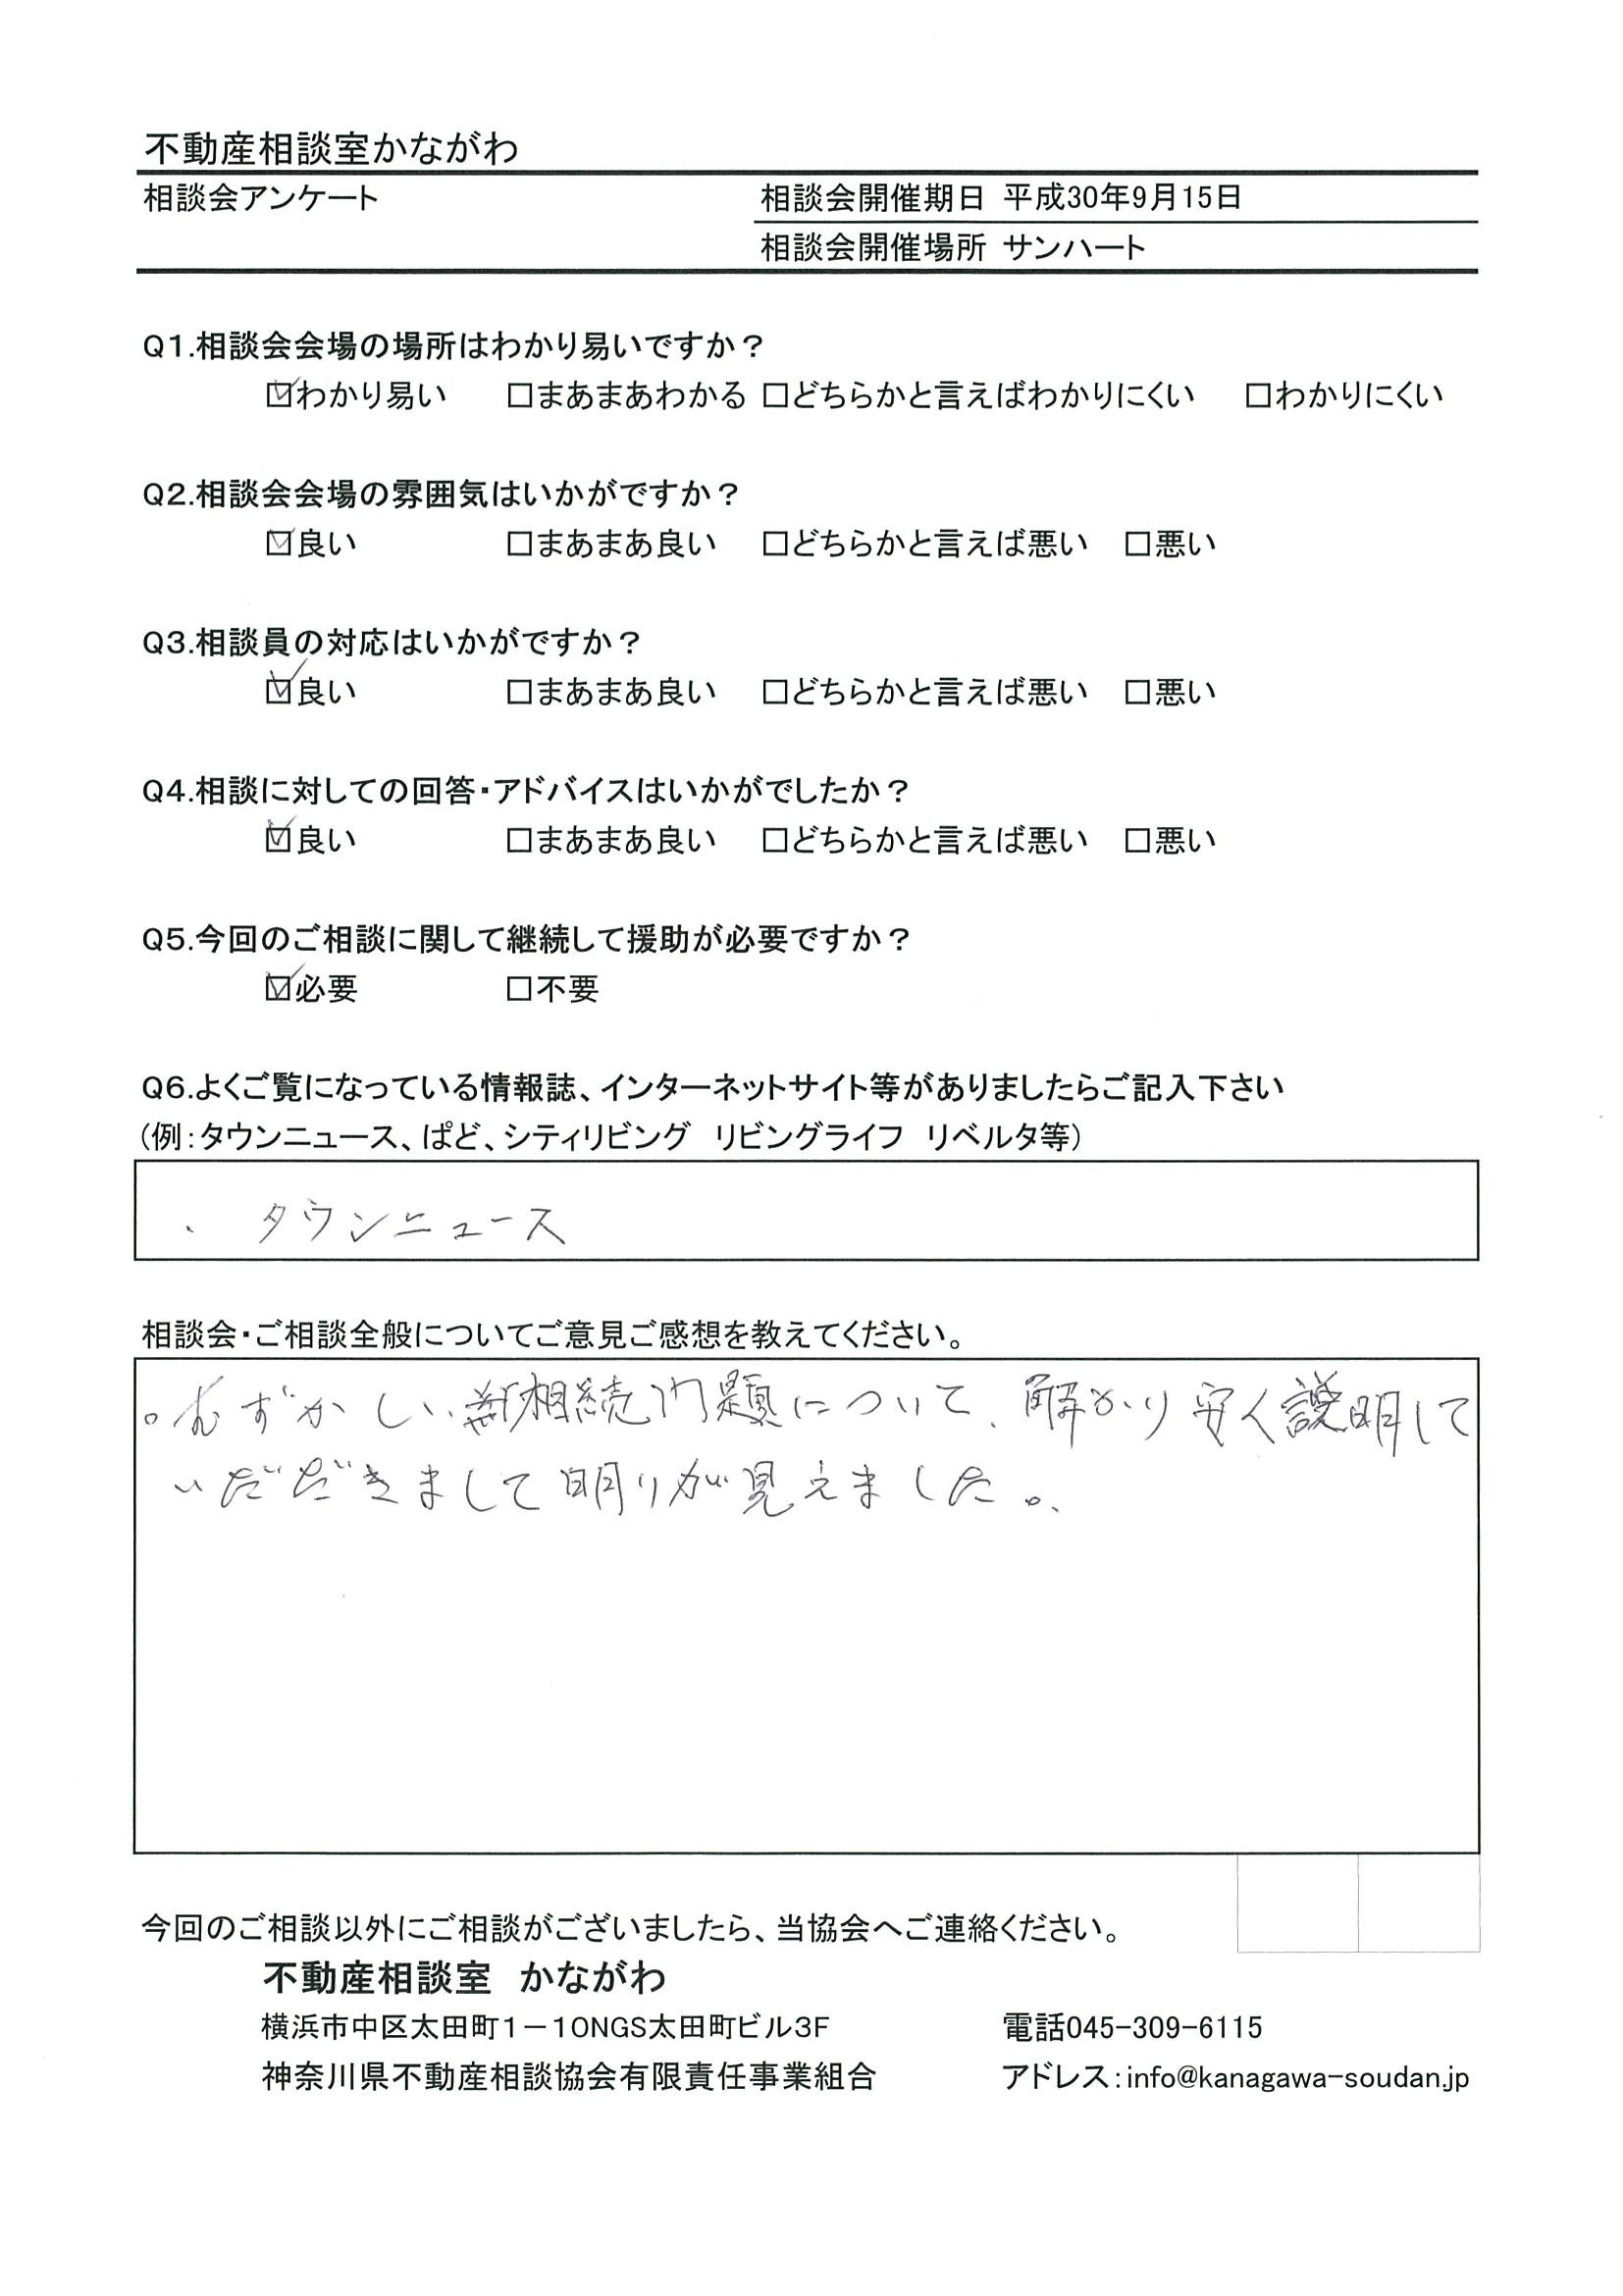 不動産相談室かながわ
相談会アンケート
相談会開催期日 平成30年9月15日
相談会開催場所 サンハート
Q1.相談会会場の場所はわかり易いですか?
☑わかり易い □まあまあわかる □どちらかと言えばわかりにくい □わかりにくい
Q2.相談会会場の雰囲気はいかがですか?
☑良い □まあまあ良い □どちらかと言えば悪い □悪い
Q3.相談員の対応はいかがですか?
☑良い □まあまあ良い □どちらかと言えば悪い □悪い
Q4.相談に対しての回答・アドバイスはいかがでしたか?
☑良い □まあまあ良い □どちらかと言えば悪い □悪い
Q5.今回のご相談に関して継続して援助が必要ですか?
☑必要 □不要
Q6.よくご覧になっている情報誌、インターネットサイト等がありましたらご記入下さい
(例:タウンニュース、ぱど、シティリビング リビングライフ リベルタ等)
、タウンニュース
相談会・ご相談全般についてご意見ご感想を教えてください。
。むずかしい、相続問題について、解かり安く説明して
いだだきまして明りが見えました。
今回のご相談以外にご相談がございましたら、当協会へご連絡ください。
不動産相談室 かながわ
横浜市中区太田町1-10NGS太田町ビル3F 電話045-309-6115
神奈川県不動産相談協会有限責任事業組合 アドレス:info@kanagawa-soudan.jp